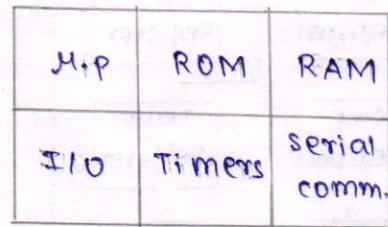 M.P ROM RAM
I/O Timers serial
comm.